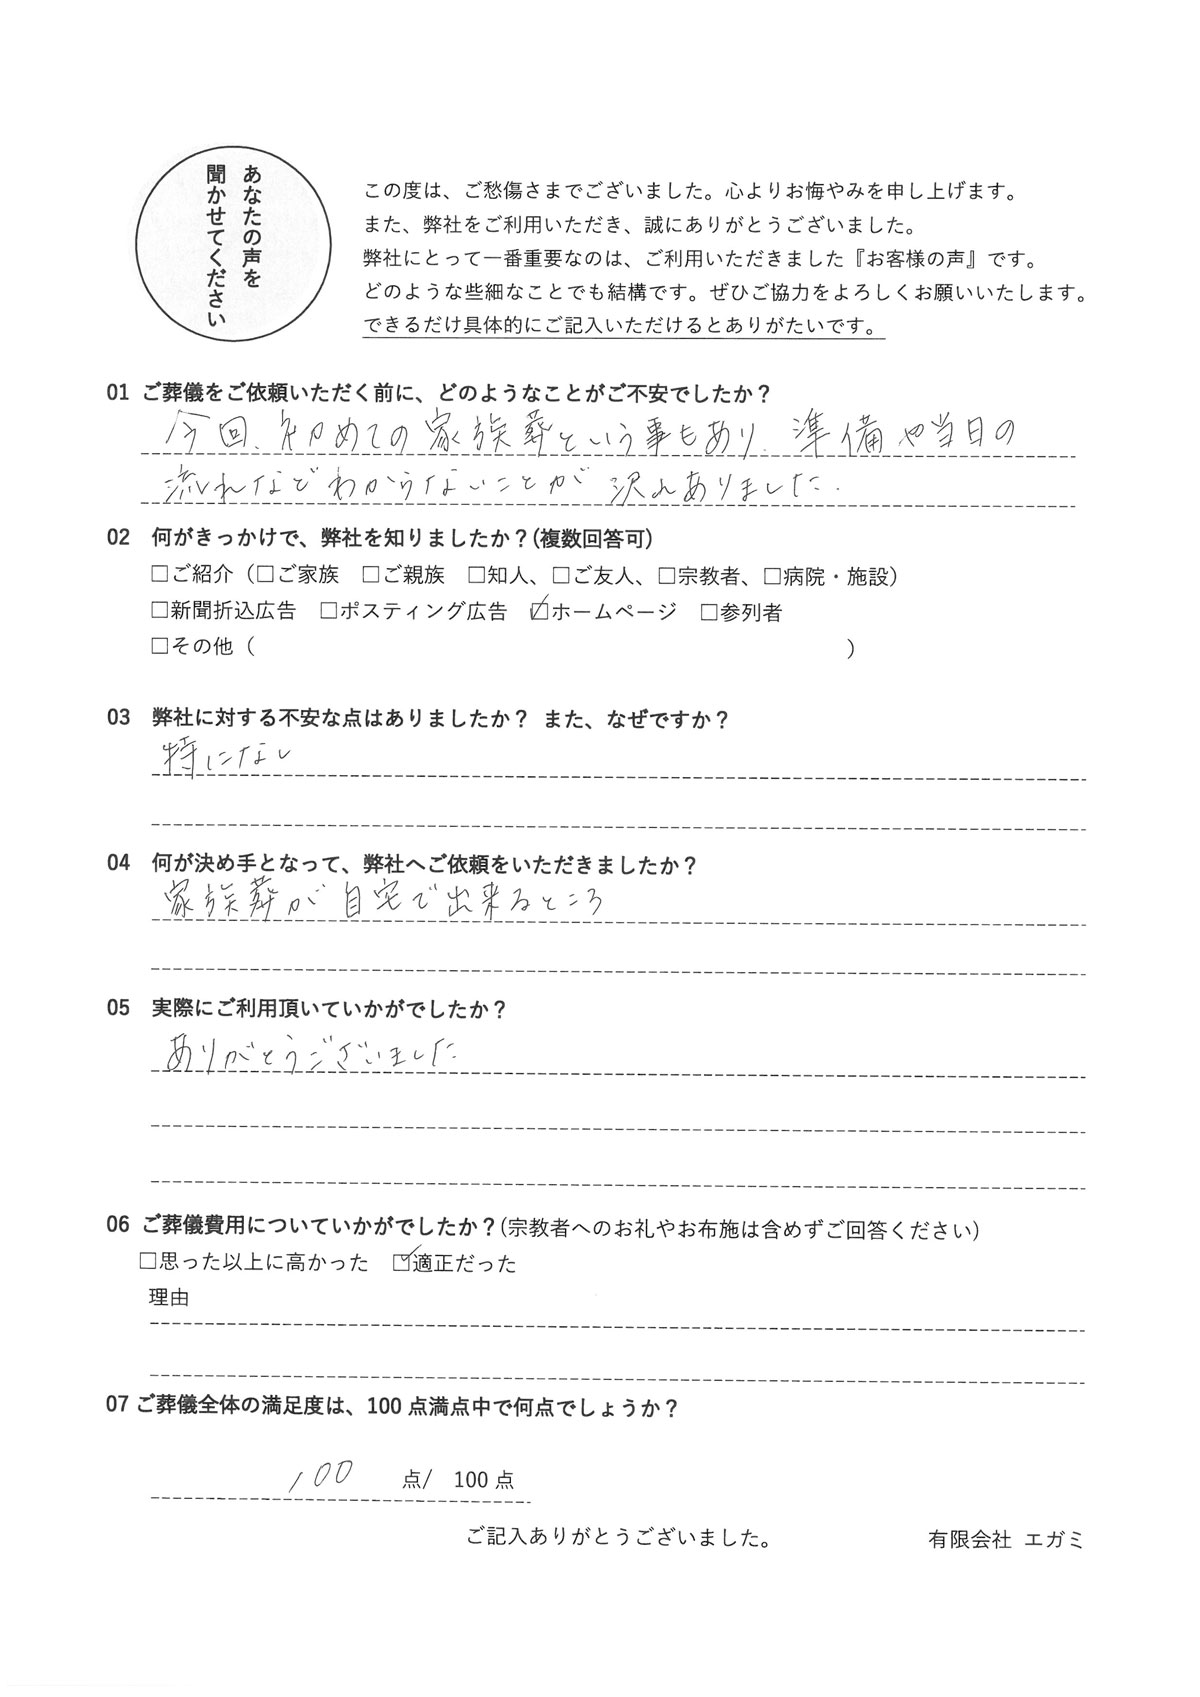 あなたの声を
聞かせてください
この度は、ご愁傷さまでございました。心よりお悔やみを申し上げます。
また、弊社をご利用いただき、誠にありがとうございました。
弊社にとって一番重要なのは、ご利用いただきました『お客様の声』です。
どのような些細なことでも結構です。ぜひご協力をよろしくお願いいたします。
できるだけ具体的にご記入いただけるとありがたいです。
01 ご葬儀をご依頼いただく前に、どのようなことがご不安でしたか？
今回、初めての家族葬という事もあり、準備や当日の
流れなどわからないことが沢山ありました。
02 何がきっかけで、弊社を知りましたか？(複数回答可)
□ご紹介（□ご家族 □ご親族 □知人、□ご友人、□宗教者、□病院・施設）
□新聞折込広告 □ポスティング広告 ☑ホームページ □参列者
□その他（ ）
03 弊社に対する不安な点はありましたか？ また、なぜですか？
特になし
04 何が決め手となって、弊社へご依頼をいただきましたか？
家族葬が自宅で出来るところ
05 実際にご利用頂いていかがでしたか？
ありがとうございました
06 ご葬儀費用についていかがでしたか？(宗教者へのお礼やお布施は含めずご回答ください)
□思った以上に高かった ☑適正だった
理由
07 ご葬儀全体の満足度は、100 点満点中で何点でしょうか？
100 点/ 100 点
ご記入ありがとうございました。 有限会社 エガミ